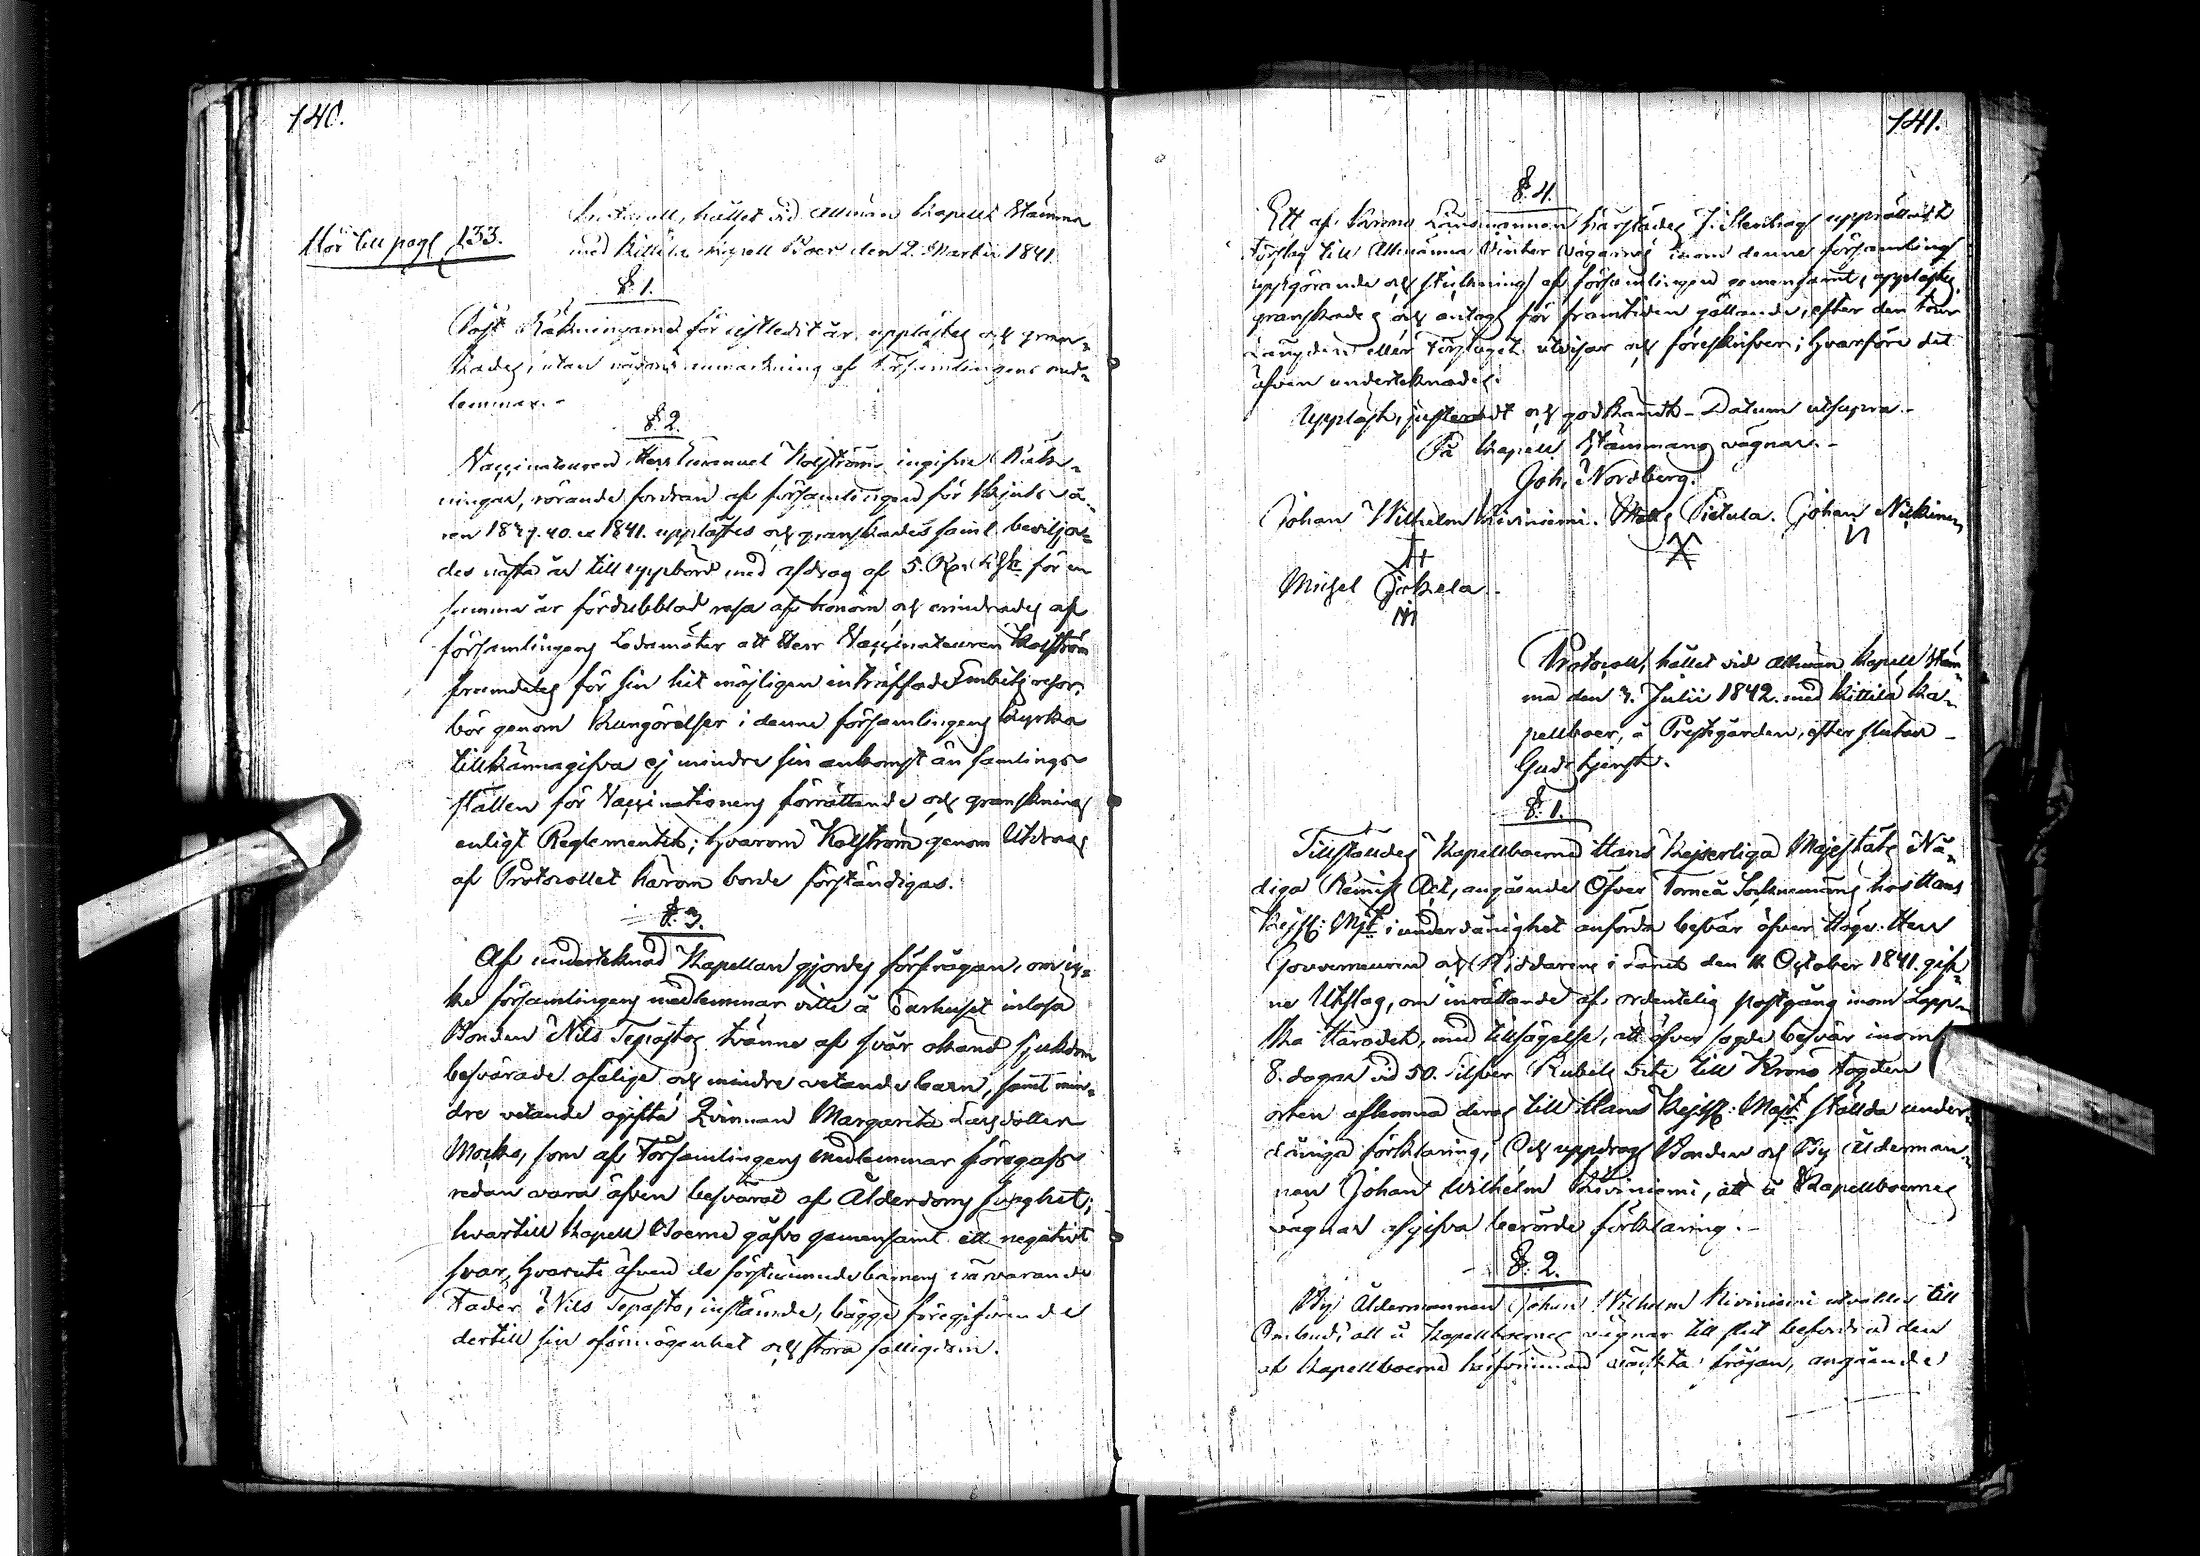 140.
Hör till pag: 133.
Protocoll, hållet vid allmän Kapell Stämma
med Kittilä Kapell Boer den 2. Martii 1841.
§. 1.
Räkningarne för sistledit år upplästes och gran-
skades, utan någons anmärkning af Församlingens med-
lemmar. -
§. 2.
Vaccinateuren Herr Emanuel Kolströms ingifne Räk-
ningar, rörande fordran af församlingen för Skjuts å-
ren 1839. 40. o 1841. upplästes och granskades samt bevilja-
des nästa år till uppbörd med afdrag af 5. för en
summa är fördubblad resa af honom och erindrades af
församlingens Ledamöter att Herr Vaccinateuren Kolström
framdeles för sin hit möjligen inträffade Embets resor,
bör genom Kungörelser i denne församlingens Kyrka
tillkännagifva ej mindre sin ankomst än samlings
ställen för Vaccinationens förrättande och granskning
enligt Reglementet; hvarom Kolström genom Utdrag
af Protocollet härom borde förständigas.
§. 3.
Af undertecknad Kapellan gjordes förfrågan, om ic-
ke församlingens medlemmar ville å Darhuset inlösa
Bonden Nils Tepastos tvänne af svår okänd sjukdom
besvärade ofälige och mindre vetande barn, samt min-
dre vetande ogifta Qvinnan Margareta Larsdotter
som af Församlingens medlemmar föregafs
redan vara äfven besvärat af Ålderdoms svaghet;
hvartill Kapell Boerne gåfvo gemensamt ett negativt
svar, hvaruti äfven de förstnämnde barnens närvarande
Fader Nils Tepasto, instämde, bägge föregifvande
dertill sin oförmögenhet och stora fattigdom.
141.
§. 4.
Ett af Krono Länsmannen härstädes J. Stenbag upprättadt
Förslag till Allmänna Vinter Vägarnes inom denne församling
uppgörande och af församlingen gemensamt, upplästes,
granskades och antogs för framtiden gällande, efter den
Längden eller Förslaget utvisar och föreskrifver; hvarföre det
äfven undertecknades.
Uppläst, justeradt och godkändt - Datum utsupra. -
På Kapell Stämmans vägnar. -
Joh. Nordberg.
Johan Wilhelm Kiviniemi. Matts Pietula. Johan Nikkinen
Michel Jokela.
Protocoll, hållet vid allmän Kapell Stäm-
ma den 3. Julii 1842. med Kittilä Ka-
pellboer, å Prestgården, efter slutad -
Gudstjenst.
§. 1.
Tillställdes Kapellboerne Hans Kejserliga Majestäts Nå-
diga Remiss Act, angående Öfver Torneå Socknemäns hos Hans
Kejsl: Mjt i underdånighet anförda besvär öfver Högv. Herr
Gouverneuren och Riddarens i Länet den 11 October 1841. gif-
ne Utslag, om inrättande af ordentelig postgång inom Lapp-
ska Häradet, med tillsägelse, att öfver sagde besvär inom
8. dagar vid 50. Silfver Rubels vite till Krono Fogden
orten aflemna deras till Hans Kejsl: Majt ställda under-
dåniga förklaring; Och uppdrogs Bonden och By Ålderman-
nen Johan Wilhelm Kiviniemi, att å Kapellboernes
vägnar afgifva berörde förklaring. -
§. 2.
By Åldermannen Johan Wilhelm Kiviniemi utvaldes till
Ombud, att å Kapellboernes vägnar till slut befordra den
af Kapellboerne härförinnan väckta frågan, angående